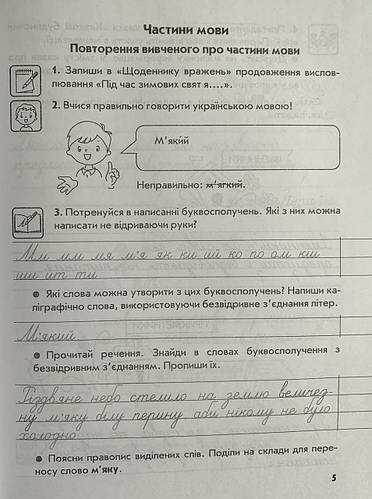 Частини мови
Повторення вивченого про частини мови
1. Запиши в «Щоденнику вражень» продовження вислов-
лювання «Під час зимових свят я....».
2. Вчися правильно говорити українською мовою!
М'який
Неправильно: м'ягкий.
3. Потренуйся в написанні буквосполучень. Які з них можна
написати не відриваючи руки?
Ми мм мя м'я як ки ий ко по ом кий
ши ит ти
● Які слова можна утворити з цих буквосполучень? Напиши ка-
ліграфічно слова, використовуючи безвідривне з'єднання літер.
М'який
● Прочитай речення. Знайди в словах буквосполучення з
безвідривним з'єднанням. Пропиши їх.
Різдвяне небо стелило на землю величез-
ну м'яку білу перину, аби нікому не було
холодно.
● Поясни правопис виділених слів. Поділи на склади для пере-
носу слово м'яку.
5